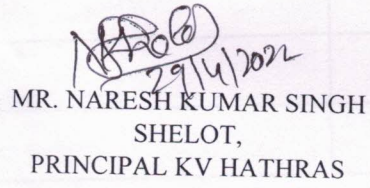 29/4/2022
MR. NARESH KUMAR SINGH
SHELOT,
PRINCIPAL KV HATHRAS